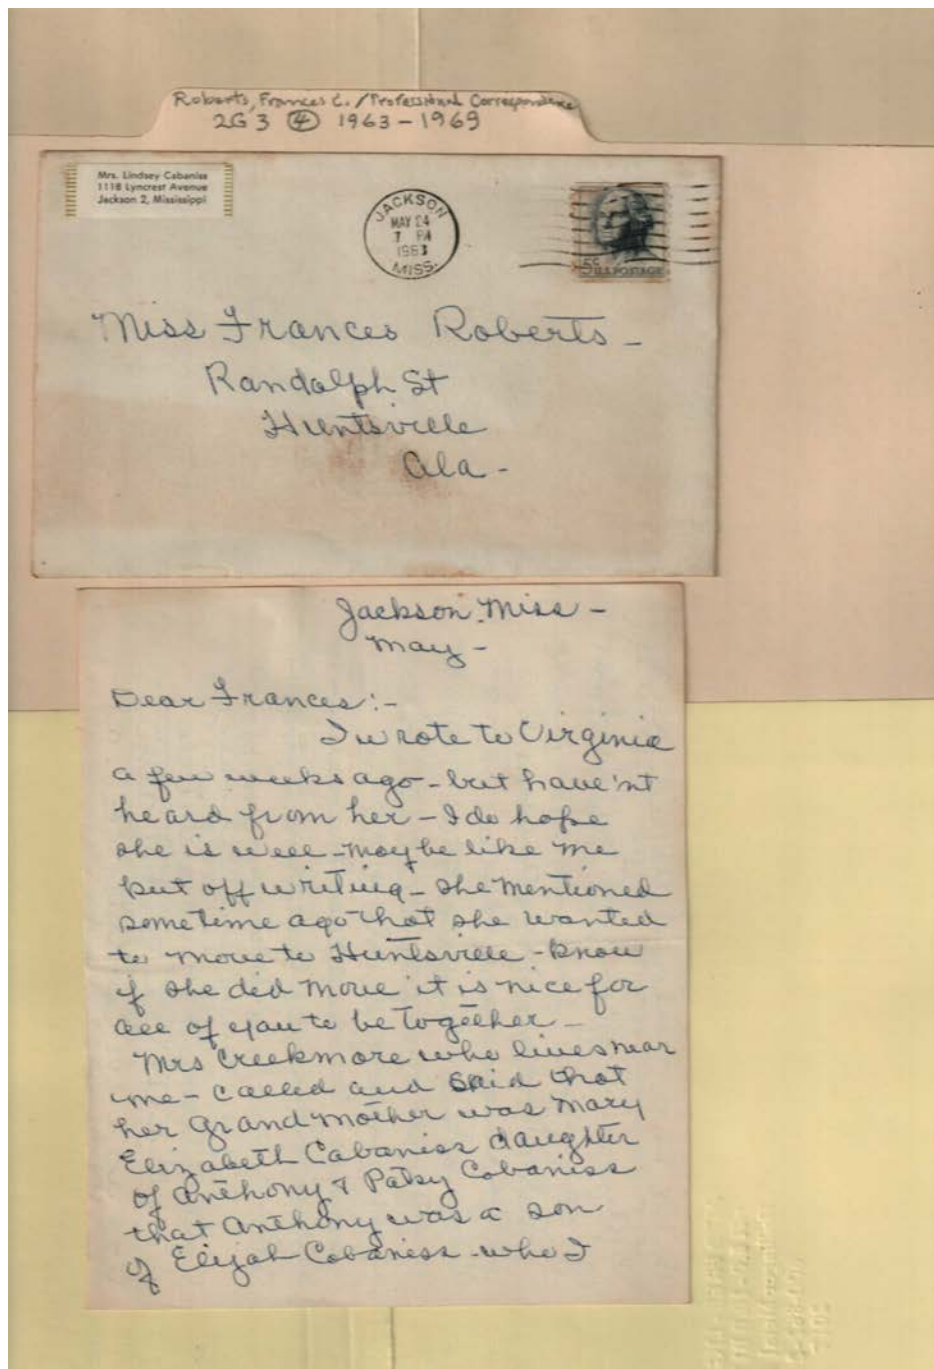 Roberts, Frances C. / Professional Correspondence
2G 3 ④ 1963-1969
Mrs. Lindsey Cabaniss
1118 Lyncrest Avenue
Jackson 2, Mississippi
JACKSON
MAY 24
7 PM
1963
MISS.
5¢ U.S. POSTAGE
Miss Frances Roberts -
Randolph St
Huntsville
Ala -
Jackson, Miss -
May -
Dear Frances:-
I wrote to Virginia
a few weeks ago - but have'nt
heard from her - I do hope
she is well - maybe like me
put off writing - she mentioned
sometime ago that she wanted
to move to Huntsville - know
if she did move it is nice for
all of you to be together -
Mrs Creekmore who lives near
me - called and said that
her Grandmother was Mary
Elizabeth Cabaniss daughter
of Anthony & Patsy Cabaniss
that Anthony was a son
of Elijah Cabaniss - who I